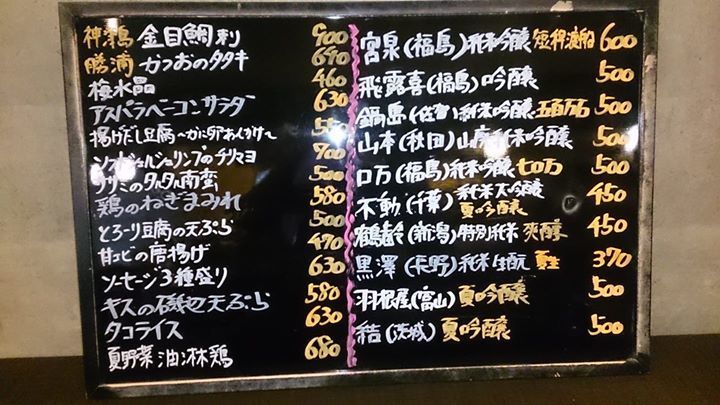 神津島 金目鯛刺 900
勝浦 かつおのタタキ 640
梅水晶 460
アスパラベーコンサラダ 630
揚げだし豆腐〜かに卵あんかけ〜 550
ソフトシェルシュリンプのチリマヨ 700
ササミのタルタル南蛮 500
鶏のねぎまみれ 580
とろーり豆腐の天ぷら 500
甘エビの唐揚げ 470
ソーセージ3種盛り 630
キスの磯辺天ぷら 580
タコライス 630
夏野菜油淋鶏 680
宮泉(福島)純米吟醸 短稈渡船 600
飛露喜(福島)吟醸 500
鍋島(佐賀)純米吟醸 五百万石 500
山本(秋田)山廃純米吟醸 500
ロ万(福島)純米吟醸 七ロ万 500
不動(千葉)純米大吟醸 夏吟醸 450
鶴齢(新潟)特別純米 爽醇 450
黒澤(長野)純米生酛 夏生 370
羽根屋(富山)夏吟醸 500
結(茨城)夏吟醸 500